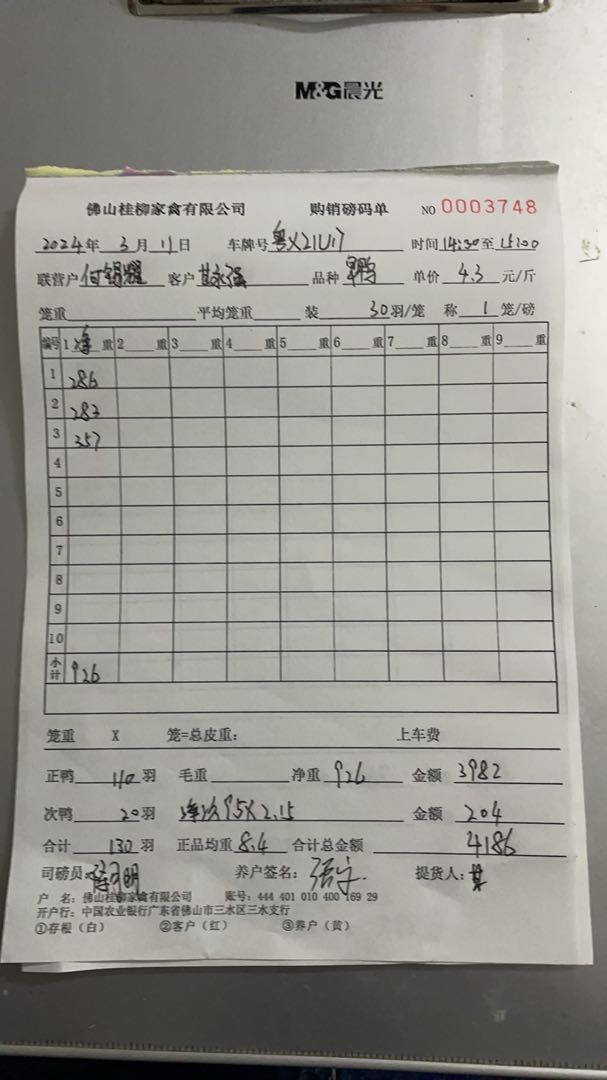 M&G晨光
佛山桂柳家禽有限公司 购销磅码单 NO 0003748
2024年 3月 11日 车牌号 粤X21U17 时间 14:30至 15:00
联营户 何锡耀 客户 甘永强 品种 单价 4.3 元/斤
笼重 平均笼重 装 30羽/笼 称 1 笼/磅
编号 1 净 重 2 重 3 重 4 重 5 重 6 重 7 重 8 重 9 重
1 286
2 283
3 357
4
5
6
7
8
9
10
小计 926
笼重 X 笼=总皮重: 上车费
正鸭 110 羽 毛重 净重 926 金额 3982
次鸭 20羽 净次95X2.15 金额 204
合计 130 羽 正品均重 8.4 合计总金额 4186
司磅员: 养户签名: 提货人: 甘
户 名: 佛山桂柳家禽有限公司 账号: 444 401 010 400 169 29
开户行: 中国农业银行广东省佛山市三水区三水支行
①存根(白) ②客户(红) ③养户(黄)